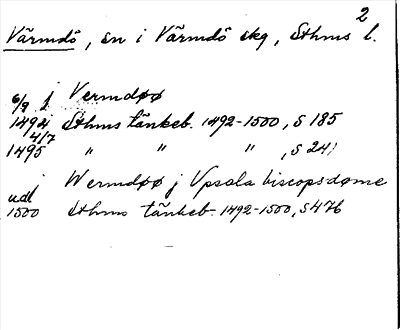 2
Värmdö, sn i Värmdö skg, Sthms l.
6/9 j Vermdøø
1494 Sthms tänkeb. 1492-1500, s 185
4/7
1495 " " " , s 241
j Wermdøø j Vpsala biscopsdøme
udl
1500 Sthms tänkeb. 1492-1500, s 476